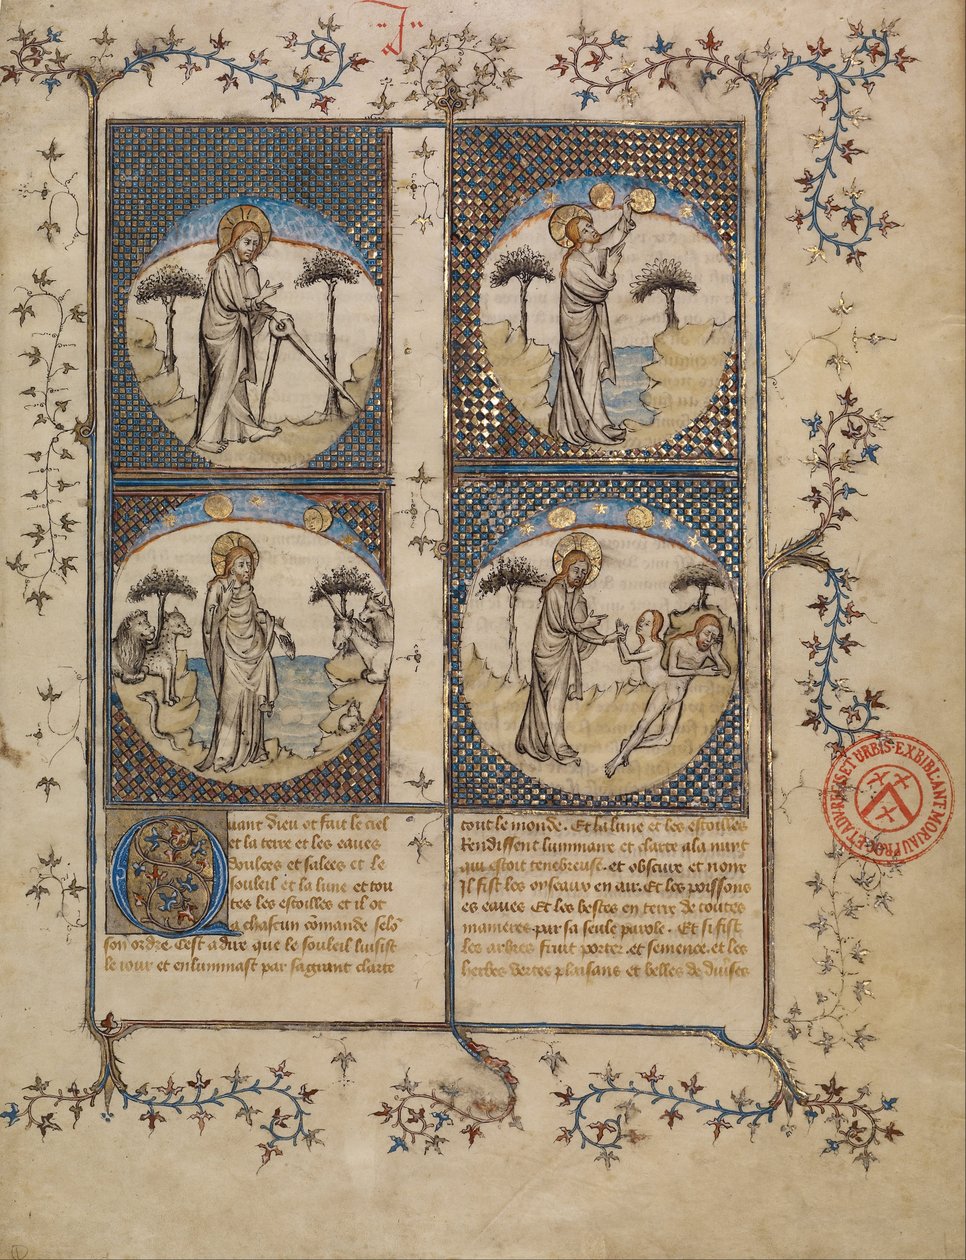 J
Quant dieu et fait le ciel
et la terre et les eaues
doulces et salees et le
souleil et la lune et tou
tes les estoilles et il ot
a chascun cōmande selō
son ordre. Cest a dire que le souleil luisist
le iour et enluminast par sa grant clarte
tout le monde. Et la lune et les estoilles
Rendissent luminaire et clarte a la nuyt
qui estoit tenebreuse. et obscure et noire
Il fist les oyseaux en air. Et les poissons
es eaues Et les bestes en terre de toutes
manieres par sa seule parole. Et si fist
les arbres fruit porter. et semence. et les
herbes vertes plaisans et belles de diuses
EX BIBL. ANT MORIAU PROC. ET ADV. REGIS ET URBIS